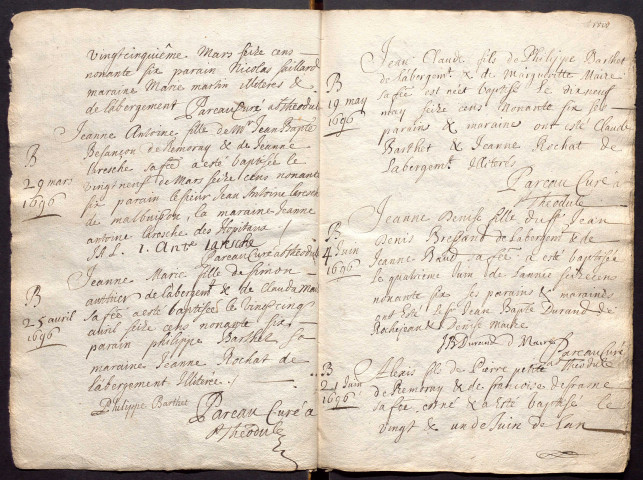 vingtcinquiéme Mars seize cens
nonante six parain Nicolas
maraine Marie martin illiteres &
de labergement Pareau Curé a St theodule
B
29 mars
1696
Jeanne Antoine fille de Mr Jean Bapte
Besançon de Remoray & de Jeanne
Bresche sa fée a esté baptisée le
vingtneuf de Mars seize cens nonante
six parain le sieur Jean Antoine
de malbuisson, la maraine Jeanne
antoine Aresche des Hopitaux
1. Ante jaresche
Pareau Curé a St theodule
B
25 avril
1696
Jeanne Marie fille de Simon
authier de labergemt & de Clauda
sa fée a esté baptisée le vingt cinq
avril seize cens nonante six
parain philippe Barthet sa
maraine Jeanne Rochat de
labergement illiteré
Philippe Barthet
Pareau Curé à
St Theodule
B
19 may
1696
Jean Claude fils de Philippe Barthet
de labergemt & de Marguerite Maire
sa fée est né & baptisé le dix neuf
may seize cens Nonante six ses
parain & maraine ont esté Claude
Barthet & Jeanne Rochat de
Labergemt illiterés
Pareau Curé à
St Theodule
B
4 Juin
1696
Jeanne Denise fille du Sr Jean
Denis Bressand de Labergemt & de
Jeanne Baud sa fée a esté baptisée
Le quatrieme Juin de L'année seize cens
nonante six ses parains & maraines
ont esté Le Sr Jean Bapte Durand de
Rochejean & Denise Maire
JB Durand D Maire
Pareau Curé
a St Theodule
B
21 Juin
1696
Alexis fils de Pierre petite
de Remoray & de francoise
sa fée est né & a esté baptisé le
vingt & un de Juin de L'an